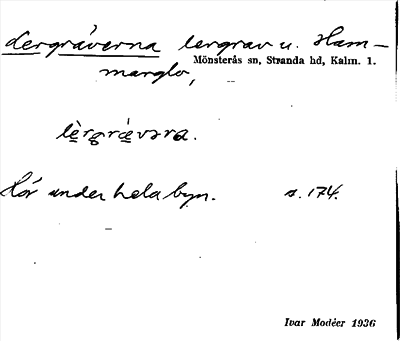 Lergråverna lergrav u. Ham-
Mönsterås sn, Stranda hd, Kalm. 1.
marglo,
lèrgrávəra.
hör under hela byn. s. 174.
Ivar Modéer 1936